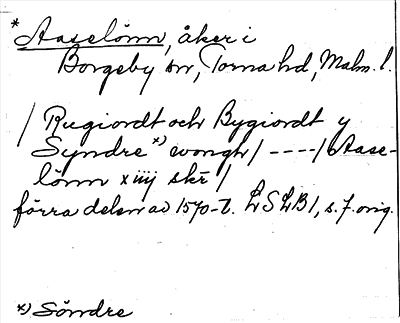 * Aaselönn, åker i
Borgeby sn, Torna hd, Malm. l.
/ Rugiordt och Bygiordt y
Syndre *) wongh / ---- / 6 Aase-
lönn xiiij skr /
förra delen av 1570-t. LSLB 1, s. 7. orig.
*) Söndre